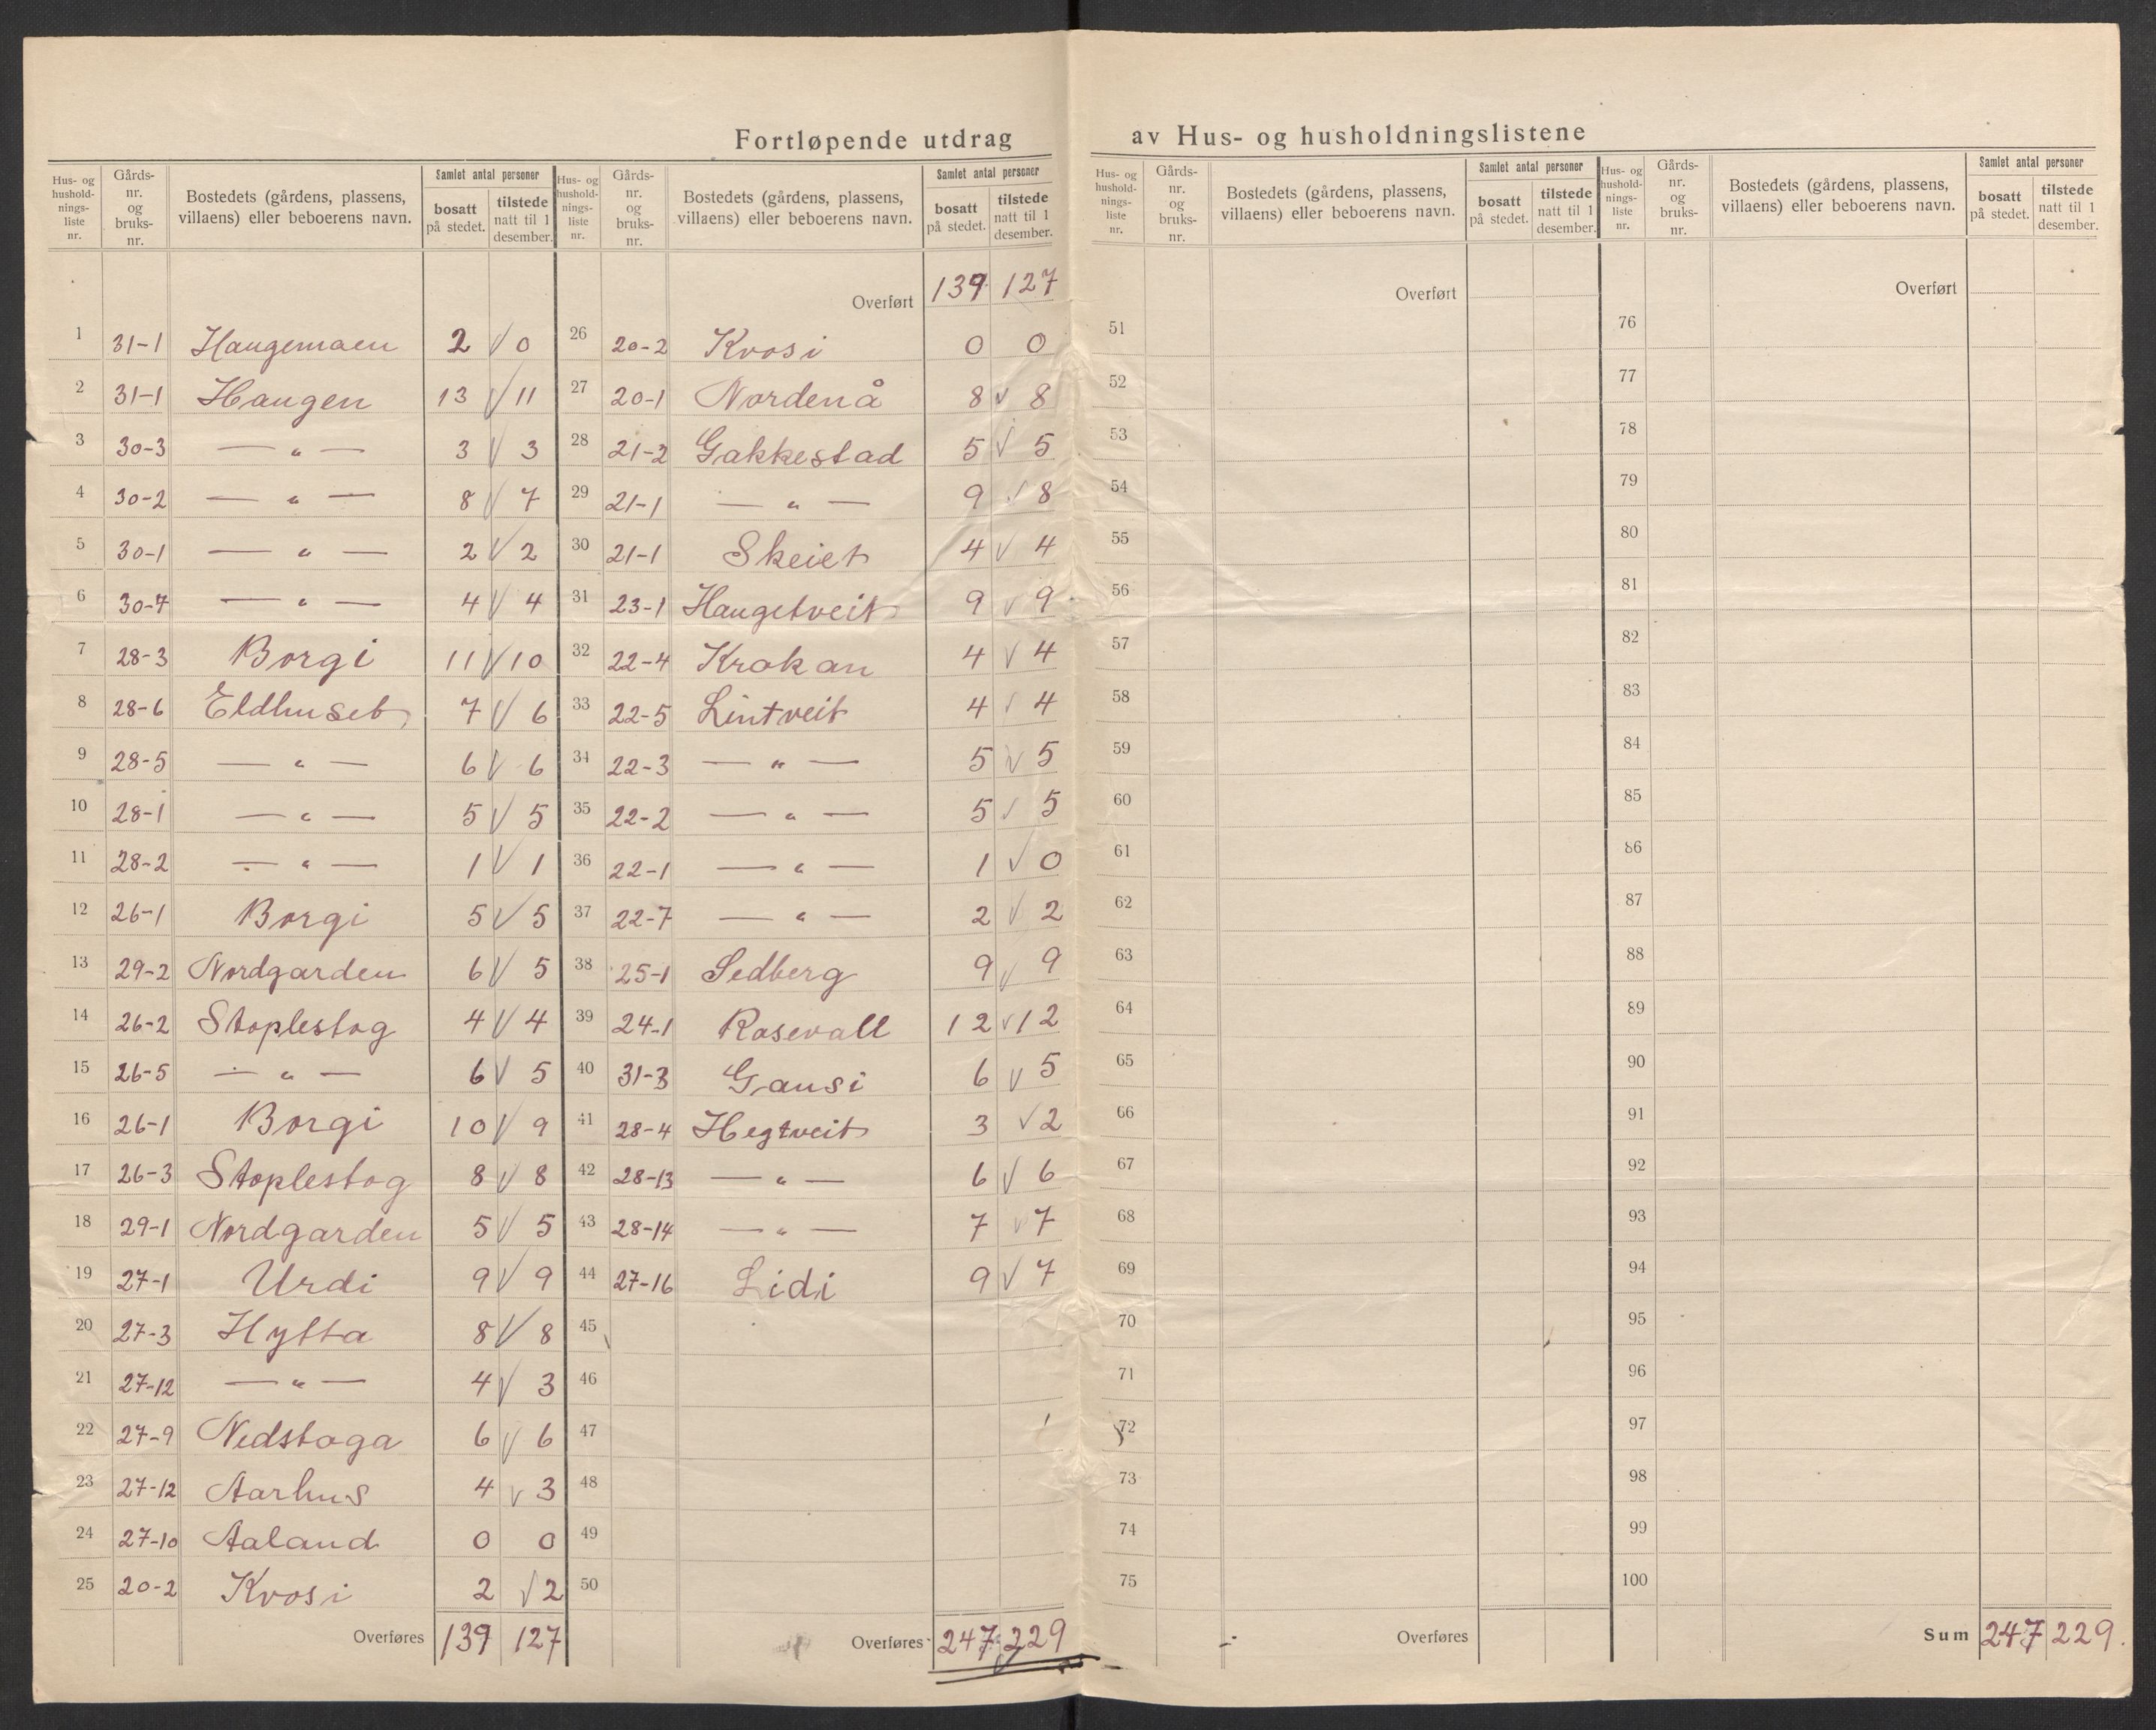 Fortløpende utdrag av Hus- og husholdningslistene
Hus- og husholdningsliste nr. | Gårdsnr. og bruksnr. | Bostedets (gårdens, plassens, villaens) eller beboerens navn. | Samlet antal personer | bosatt på stedet. | tilstede natt til 1 desember.
1 31-1 Haugemoen 2 √ 0
2 31-1 Haugen 13 √ 11
3 30-3 — " — 3 √ 3
4 30-2 — " — 8 √ 7
5 30-1 — " — 2 √ 2
6 30-7 — " — 4 √ 4
7 28-3 Borgi 11 √ 10
8 28-6 Eldhuset 7 √ 6
9 28-5 — " — 6 √ 6
10 28-1 — " — 5 √ 5
11 28-2 — " — 1 √ 1
12 26-1 Borgi 5 √ 5
13 29-2 Nordgarden 6 √ 5
14 26-2 Stoplestog 4 √ 4
15 26-5 — " — 6 √ 5
16 26-1 Borgi 10 √ 9
17 26-3 Stoplestog 8 √ 8
18 29-1 Nordgarden 5 √ 5
19 27-1 Urdi 9 √ 9
20 27-3 Hytta 8 √ 8
21 27-12 — " — 4 √ 3
22 27-9 Nedstoga 6 √ 6
23 27-12 Aarhus 4 √ 3
24 27-10 Aaland 0 0
25 20-2 Kvosi 2 √ 2
Overføres 139 127
Hus- og husholdningsliste nr. | Gårdsnr. og bruksnr. | Bostedets (gårdens, plassens, villaens) eller beboerens navn. | Samlet antal personer | bosatt på stedet. | tilstede natt til 1 desember.
Overført 139 127
26 20-2 Kvosi 0 0
27 20-1 Nordenå 8 √ 8
28 21-2 Gakkestad 5 √ 5
29 21-1 — " — 9 √ 8
30 21-1 Skeiet 4 √ 4
31 23-1 Haugetveit 9 √ 9
32 22-4 Krokan 4 √ 4
33 22-5 Lintveit 4 √ 4
34 22-3 — " — 5 √ 5
35 22-2 — " — 5 √ 5
36 22-1 — " — 1 √ 0
37 22-7 — " — 2 √ 2
38 25-1 Sedberg 9 √ 9
39 24-1 Rosevall 12 √ 12
40 31-3 Gausi 6 √ 5
41 28-4 Hegtveit 3 √ 2
42 28-13 — " — 6 √ 6
43 28-14 — " — 7 √ 7
44 27-16 Lidi 9 √ 7
45
46
47
48
49
50
Overføres 247 229
Hus- og husholdningsliste nr. | Gårdsnr. og bruksnr. | Bostedets (gårdens, plassens, villaens) eller beboerens navn. | Samlet antal personer | bosatt på stedet. | tilstede natt til 1 desember.
Overført
51
52
53
54
55
56
57
58
59
60
61
62
63
64
65
66
67
68
69
70
71
72
73
74
75
Overføres
Hus- og husholdningsliste nr. | Gårdsnr. og bruksnr. | Bostedets (gårdens, plassens, villaens) eller beboerens navn. | Samlet antal personer | bosatt på stedet. | tilstede natt til 1 desember.
Overført
76
77
78
79
80
81
82
83
84
85
86
87
88
89
90
91
92
93
94
95
96
97
98
99
100
Sum 247 229.